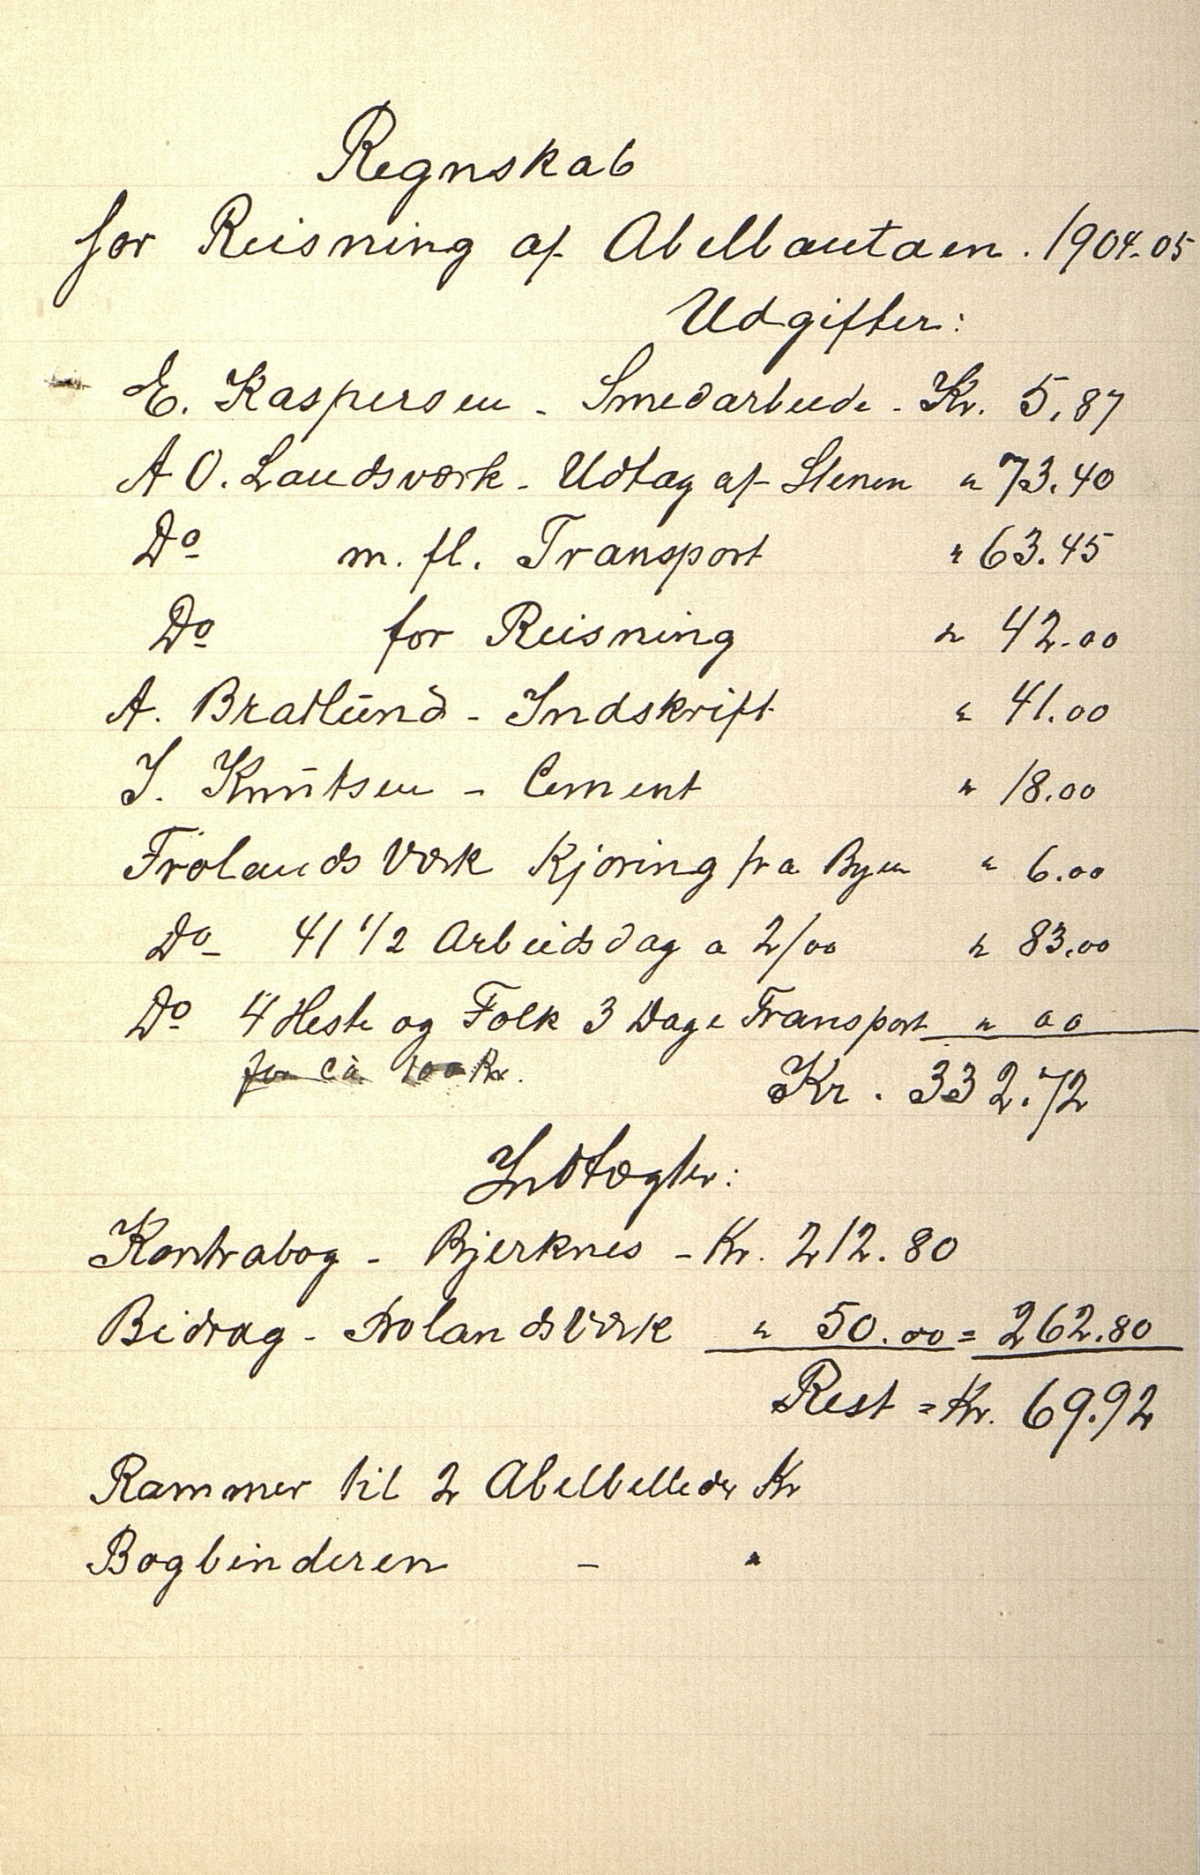 Regnskab
for Reisning af Abelbautaen. 1904-05
Udgifter:
E. Kaspersen - Smedarbeide - Kr. 5,87
A O. Landsværk - Udtag af Stenen " 73.40
Do m. fl. Transport " 63.45
Do for Reisning " 42.00
A. Bratlund - Indskrift " 41.00
J. Knutsen - Cement " 18.00
Frolands Værk Kjøring fra Byen " 6.00
Do - 41 1/2 Arbeidsdag a 2/00 " 83.00
Do 4 Heste og Folk 3 Dage Transport " 00
for ca 100 Kr.
Kr. 332.72
Indtægter:
Kontrabog - Bjerknes - Kr. 212.80
Bidrag - Frolands Værk " 50.00 = 262.80
Rest = Kr. 69.92
Rammer til 2 Abelbilleder Kr
Bogbinderen - "